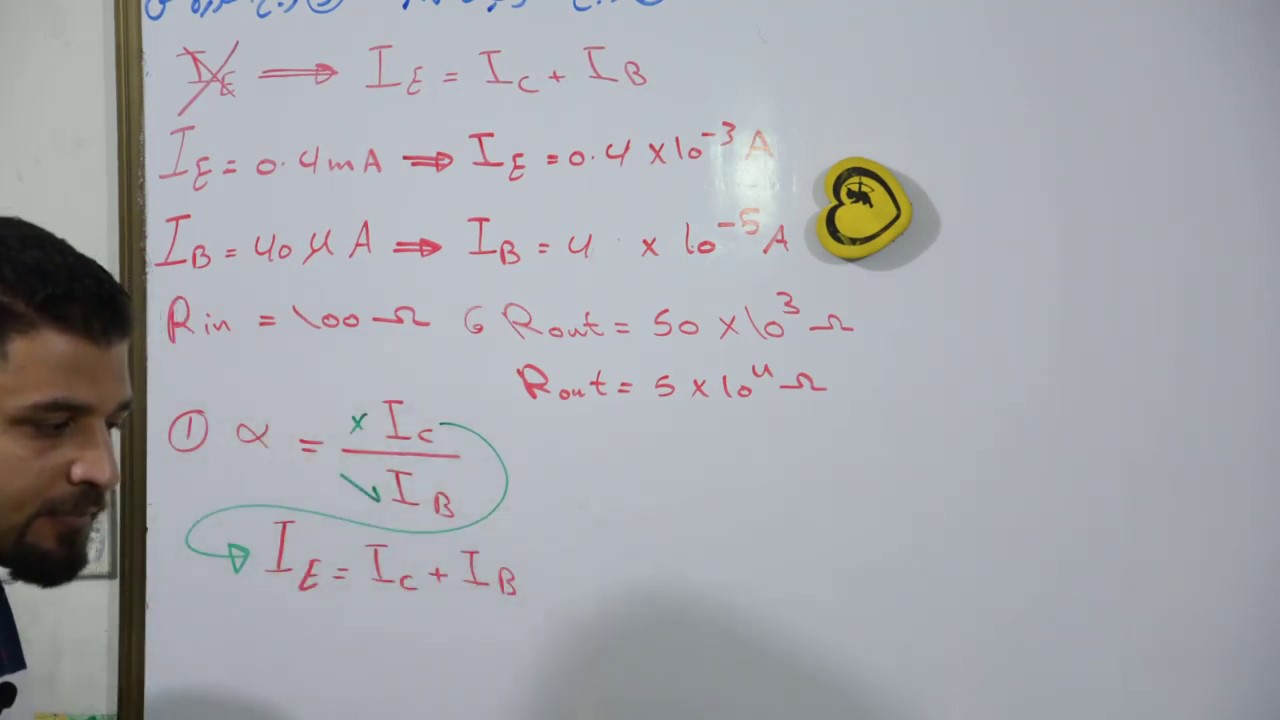 I_E ⟹ I_E = I_C + I_B
I_E = 0.4 mA ⟹ I_E = 0.4 × 10^-3 A
I_B = 40 μA ⟹ I_B = 4 × 10^-5 A
R_in = 100 Ω 6 R_out = 50 × 10^3 Ω
R_out = 5 × 10^4 Ω
① α = × I_C / ✓ I_B
I_E = I_C + I_B